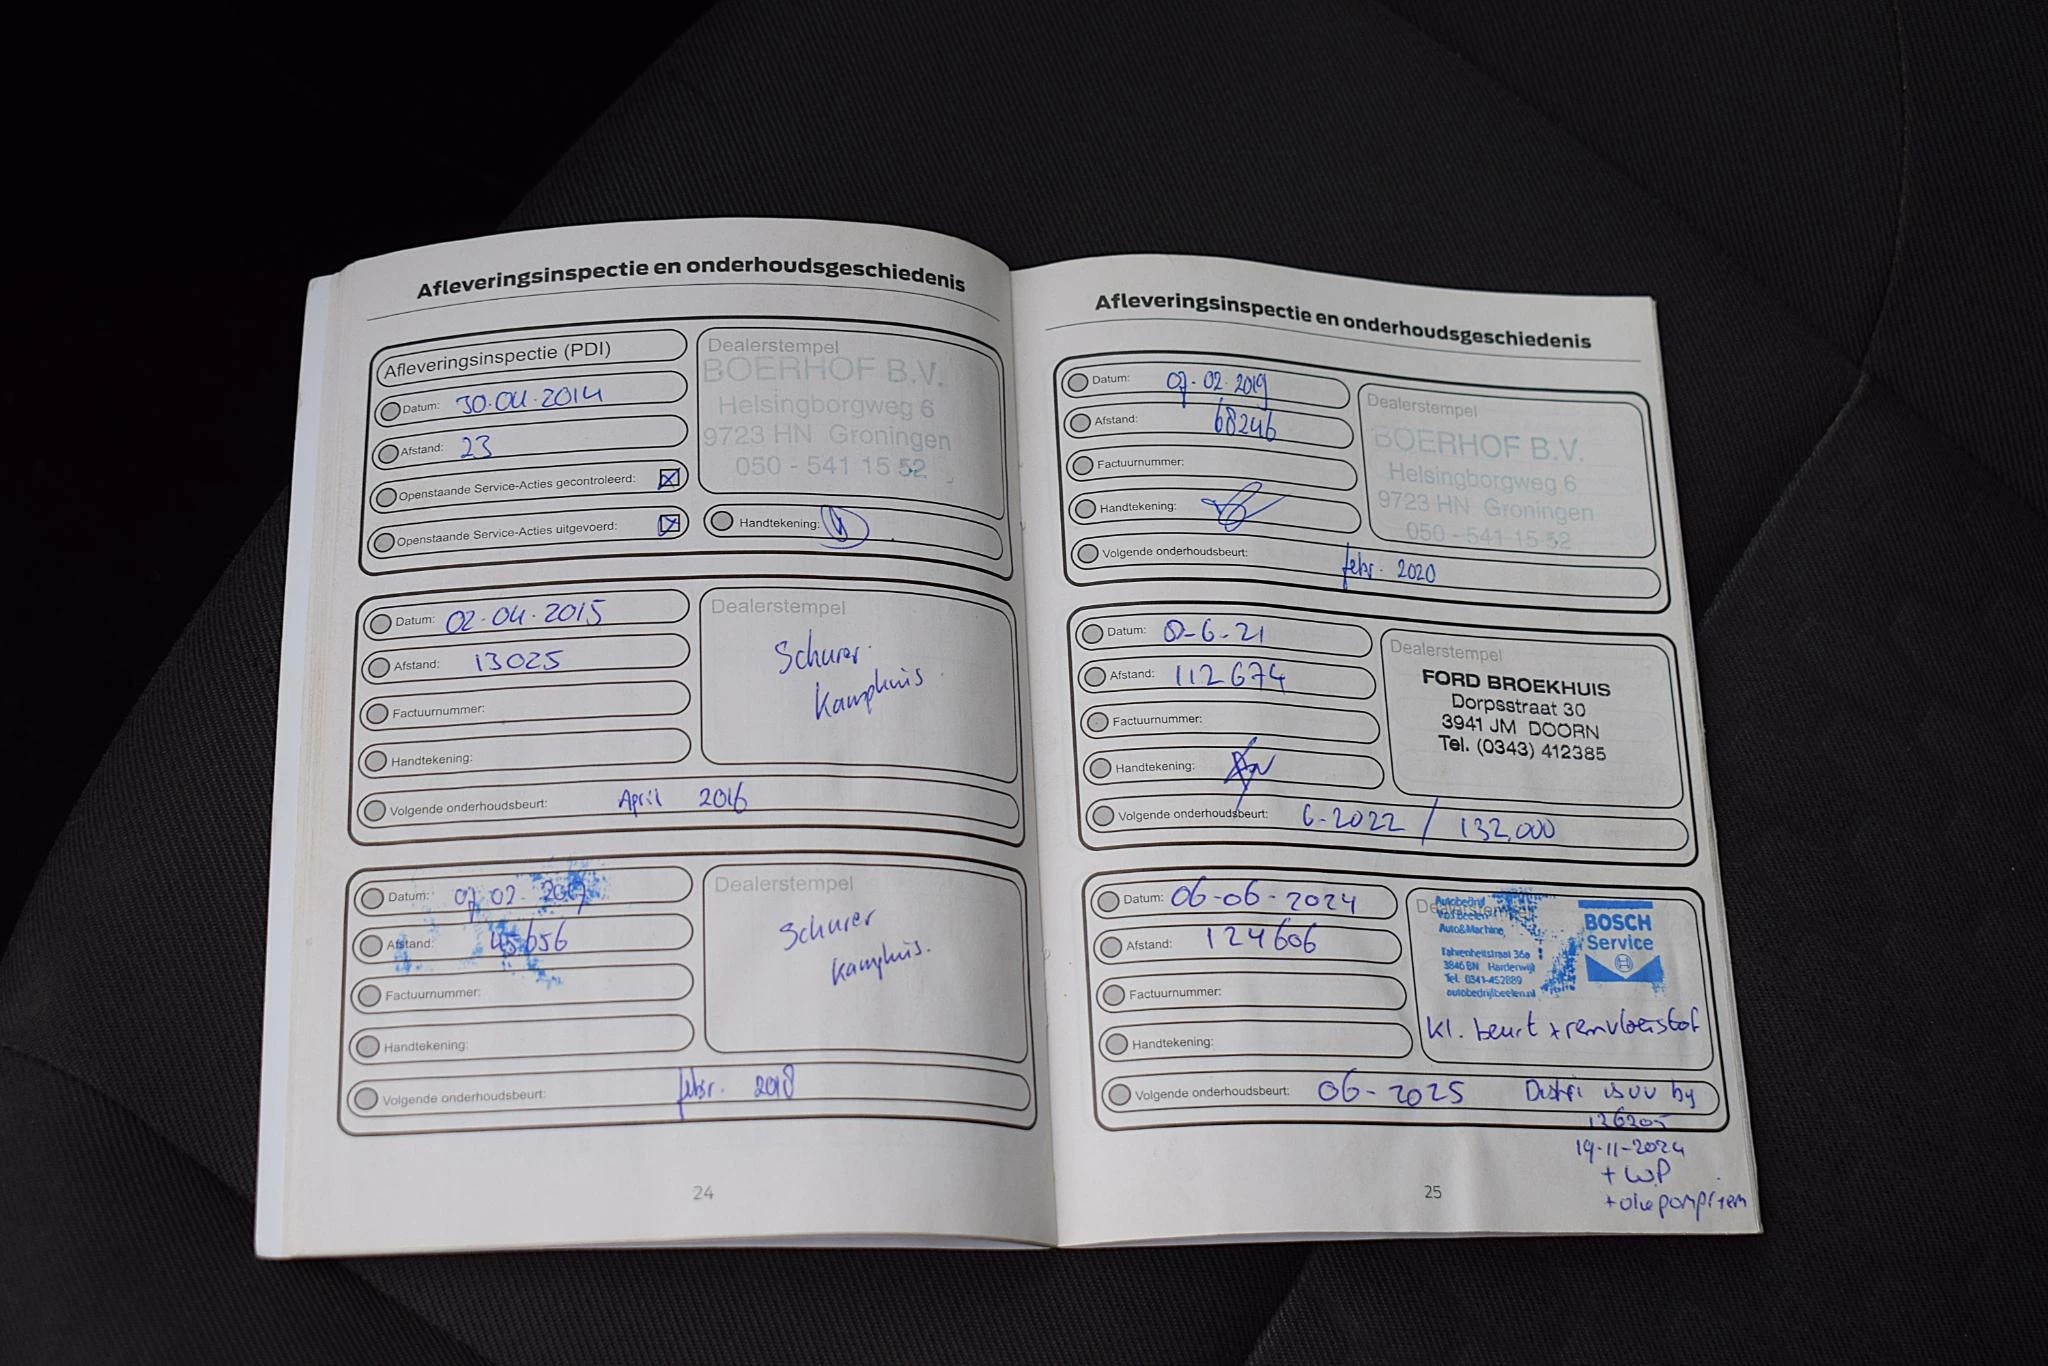 Afleveringsinspectie en onderhoudsgeschiedenis
Afleveringsinspectie (PDI)
Datum: 30-04-2014
Afstand: 23
Openstaande Service-Acties gecontroleerd:
Openstaande Service-Acties uitgevoerd:
Dealerstempel
BOERHOF B.V.
Helsingborgweg 6
9723 HN Groningen
050 - 541 15 52
Handtekening:
Datum: 02-04-2015
Afstand: 13025
Factuurnummer:
Handtekening:
Volgende onderhoudsbeurt: April 2016
Dealerstempel
Schurer
Kamphuis.
Datum: 07-02-2017
Afstand: 45656
Factuurnummer:
Handtekening:
Volgende onderhoudsbeurt: febr. 2018
Dealerstempel
Schurer
Kamphuis.
24
Afleveringsinspectie en onderhoudsgeschiedenis
Datum: 07-02-2019
Afstand: 68246
Factuurnummer:
Handtekening:
Volgende onderhoudsbeurt: febr. 2020
Dealerstempel
BOERHOF B.V.
Helsingborgweg 6
9723 HN Groningen
050 - 541 15 52
Datum: 8-6-21
Afstand: 112674
Factuurnummer:
Handtekening:
Volgende onderhoudsbeurt: 6-2022 / 132.000
Dealerstempel
FORD BROEKHUIS
Dorpsstraat 30
3941 JM DOORN
Tel. (0343) 412385
Datum: 06-06-2024
Afstand: 124606
Factuurnummer:
Handtekening:
Volgende onderhoudsbeurt: 06-2025
Dealerstempel
Autobedrijf
Auto&Machine
Fahrenheitstraat 36a
3846 BN Harderwijk
Tel. 0341-452889
autobedrijfbeelen.nl
BOSCH
Service
kl. beurt + remvloeistof
Distri is vv by
126205
19-11-2024
+ WP
+ oliepompriem
25